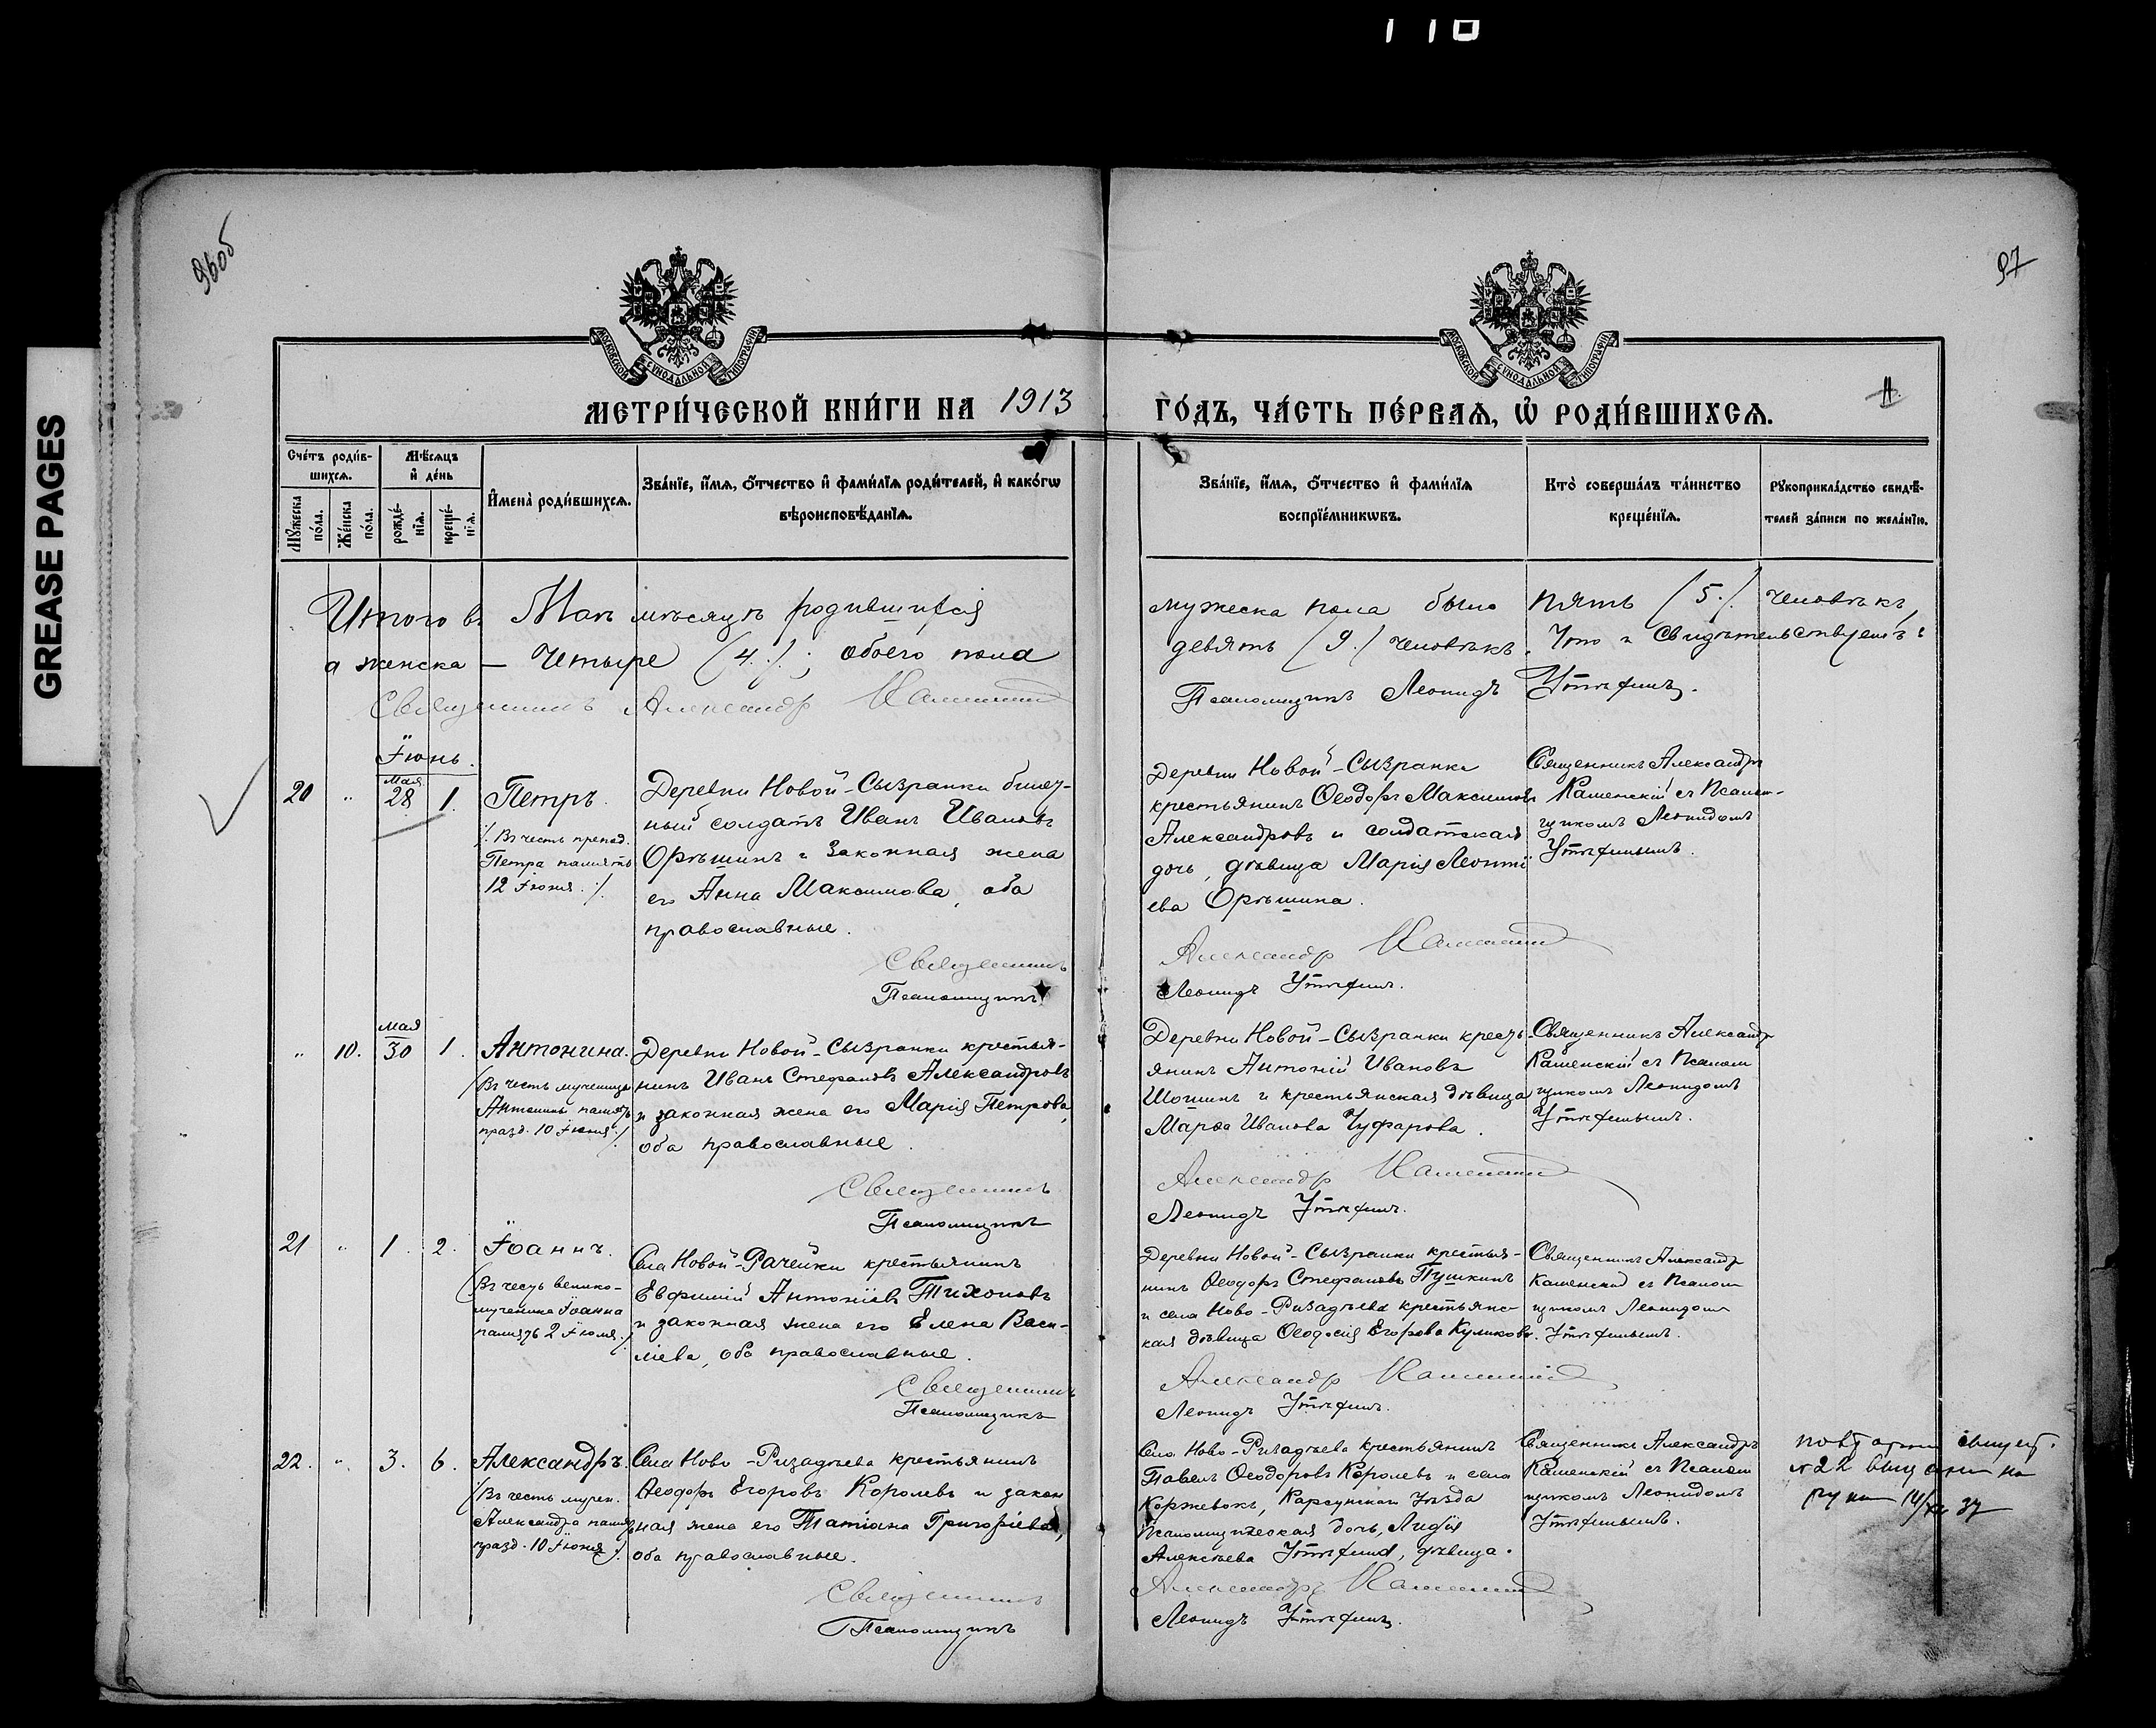 110
GREASE PAGES
96об
97
МОСКОВСКОЙ СУНОДАЛЬНОЙ ТИПОГРАФІИ
МОСКОВСКОЙ СУНОДАЛЬНОЙ ТИПОГРАФІИ
МЕТРИ́ЧЕСКОЙ КНИ́ГИ НА 1913
ГО́ДЪ, ЧА́СТЬ ПЕ́РВАѦ, Ѡ҆ РОДИ́ВШИХСѦ.
Сче́тъ роди́в-
шихсѧ.
Мѣ́сѧцъ
и҆ де́нь
Мꙋ́жеска
по́ла.
Же́нска
по́ла.
рожде́-
нїѧ.
креще́-
нїѧ.
И҆мена̀ роди́вшихсѧ.
Зва́нїе, и҆́мѧ, ѻ҆́тчество и҆ фами́лїѧ роди́телей, и҆ како́гѡ
вѣроисповѣ́данїѧ.
Зва́нїе, и҆́мѧ, ѻ҆́тчество и҆ фами́лїѧ
воспрїе́мникѡвъ.
Кто̀ соверша́лъ та́инство
креще́нїѧ.
Рꙋкоприкла́дство свидѣ́-
телей за́писи по жела́нїю.
Итого въ Маѣ мѣсяцѣ родившихся
мужеска пола было пять (5.) человѣкъ,
а женска — четыре (4.); обоего пола
девять (9.) человѣкъ. Что и свидѣтельствуемъ:
Священникъ Александр Каменскій
Псаломщикъ Леонидъ Утѣхинъ.
Іюнь.
20 " Мая 28 1.
Петръ.
/. Въ честь препод.
Петра память
12 Іюня. /.
Деревни Новой-Сызранки билет-
ный солдатъ Иванъ Ивановъ
Орѣшинъ и законная жена
его Анна Максимова, оба
православные.
Священникъ
Псаломщикъ
Деревни Новой-Сызранки
крестьянинъ Ѳеодоръ Максимовъ
Александровъ и солдатская
дочь, дѣвица Марія Леонті
ева Орѣшина.
Александр Каменскій
Леонидъ Утѣхинъ.
Священникъ Александръ
Каменскій съ Псалом-
щикомъ Леонидомъ
Утѣхинымъ.
" 10. Мая 30 1.
Антонина.
(Въ честь мученицы
Антонины память
празд. 10 Іюня /.
Деревни Новой-Сызранки крестья-
нинъ Иванъ Стефановъ Александровъ
и законная жена его Марія Петрова,
оба православные.
Священникъ
Псаломщикъ
Деревни Новой-Сызранки кресть
янинъ Антоній Ивановъ
Шошинъ и крестьянская дѣвица
Марѳа Иванова Чуфарова.
Александр Каменскій
Леонидъ Утѣхинъ.
Священникъ Александръ
Каменскій съ Псалом
щикомъ Леонидомъ
Утѣхинымъ.
21 " 1. 2.
Іоаннъ.
(Въ честь велико-
мученика Іоанна
память 2 Іюня. /
Села Новой-Рачейки крестьянинъ
Евфимій Антоніевъ Тихоновъ
и законная жена его Елена Васи-
ліева, оба православные.
Священникъ
Псаломщикъ
Деревни Новой-Сызранки крестья-
нинъ Ѳеодоръ Стефановъ Пушкинъ
и села Ново-Ризадѣева крестьянс-
кая дѣвица Ѳеодосія Егорова Куликова.
Александр Каменскій
Леонидъ Утѣхинъ.
Священникъ Александр
Каменскій съ Псалом
щикомъ Леонидомъ
Утѣхинымъ.
22. " 3. 6.
Александръ.
/Въ честь мучен.
Александра память
празд. 10 Іюня /.
Села Ново-Ризадѣева крестьянинъ
Ѳеодоръ Егоровъ Королевъ и закон
ная жена его Татіана Григоріева,
оба православные.
Священникъ
Псаломщикъ
Села Ново-Ризадѣева крестьянинъ
Павелъ Ѳеодоровъ Королевъ и села
Коржевокъ, Карсунскаго Уѣзда
псаломщическая дочь, Лидія
Алексѣева Утѣхина, дѣвица.
Александръ Каменскій
Леонидъ Утѣхинъ.
Священникъ Александръ
Каменскій съ Псалом
щикомъ Леонидомъ
Утѣхинымъ.
№ 22 на
руки